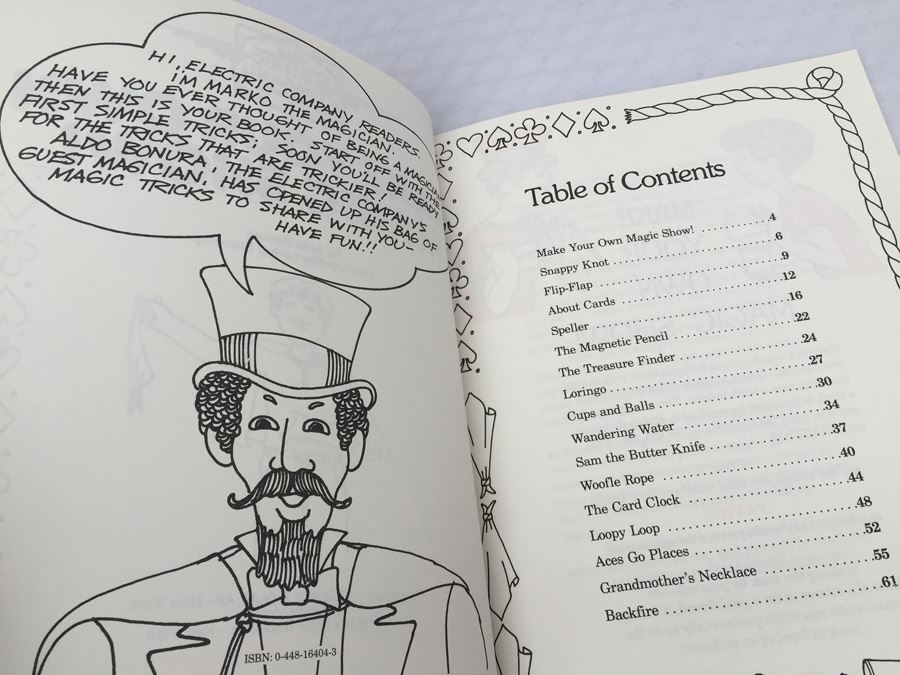 HI, ELECTRIC COMPANY READERS.
I'M MARKO THE MAGICIAN.
HAVE YOU EVER THOUGHT OF BEING A MAGICIAN?
THEN THIS IS YOUR BOOK. START OFF WITH THE
FIRST SIMPLE TRICKS; SOON YOU'LL BE READY
FOR THE TRICKS THAT ARE TRICKIER!
ALDO BONURA, THE ELECTRIC COMPANY'S
GUEST MAGICIAN, HAS OPENED UP HIS BAG OF
MAGIC TRICKS TO SHARE WITH YOU—
HAVE FUN!!
ISBN: 0-448-16404-3
Table of Contents
Make Your Own Magic Show! . . . . . . . . . . 4
Snappy Knot . . . . . . . . . . 6
Flip-Flap . . . . . . . . . . 9
About Cards . . . . . . . . . . 12
Speller . . . . . . . . . . 16
The Magnetic Pencil . . . . . . . . . . 22
The Treasure Finder . . . . . . . . . . 24
Loringo . . . . . . . . . . 27
Cups and Balls . . . . . . . . . . 30
Wandering Water . . . . . . . . . . 34
Sam the Butter Knife . . . . . . . . . . 37
Woofle Rope . . . . . . . . . . 40
The Card Clock . . . . . . . . . . 44
Loopy Loop . . . . . . . . . . 48
Aces Go Places . . . . . . . . . . 52
Grandmother's Necklace . . . . . . . . . . 55
Backfire . . . . . . . . . . 61